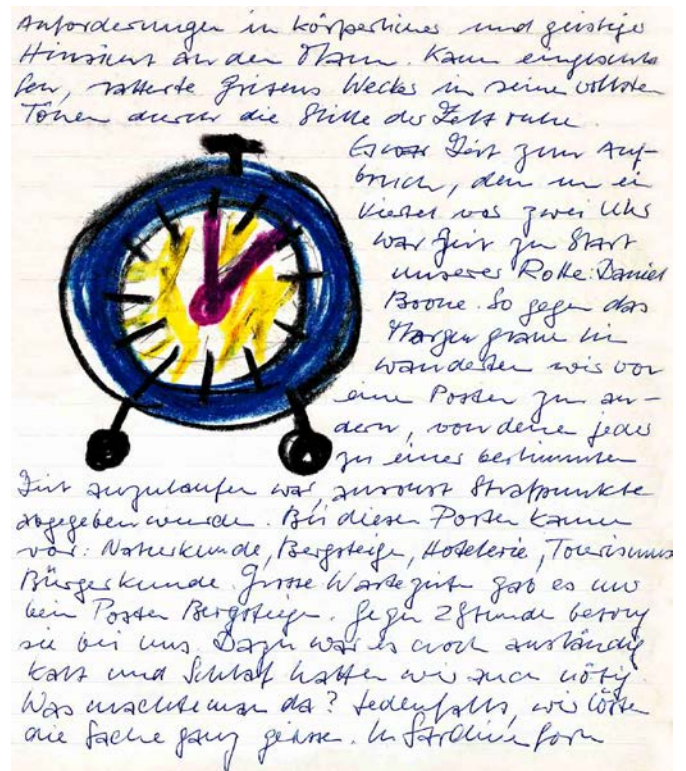 Anforderungen in körperlicher und geistiger
Hinsicht an den Mann. Kaum eingeschla
fen, ratterte Wecker in seinen vollsten
Tönen durch die Stille der Zeltruhe.
Es war Zeit zum Auf-
bruch, den um ein
viertel vor zwei Uhr
war Zeit zu Start
unserer Rotte: Daniel
Boone. So gegen das
Morgengrauen hin
wanderten wir von
eine Posten zum an-
dern, von denen jeder
zu einer bestimmten
Zeit anzulaufen war, ansonst Strafpunkte
abgegeben wurden. Bei diesen Posten kamen
vor: Naturkunde, Bergsteigen, Hotelerie, Tourismus
Bürgerkunde. Grosse Wartezeiten gab es nur
beim Posten Bergsteigen. Gegen 2 Stunde betrug
sie bei uns. Dazu war es noch anständig
kalt und Schlaf hatten wir auch nötig.
Was machte man da? Jedenfalls, wir lösten
die Sache ganz. In Sardinenform